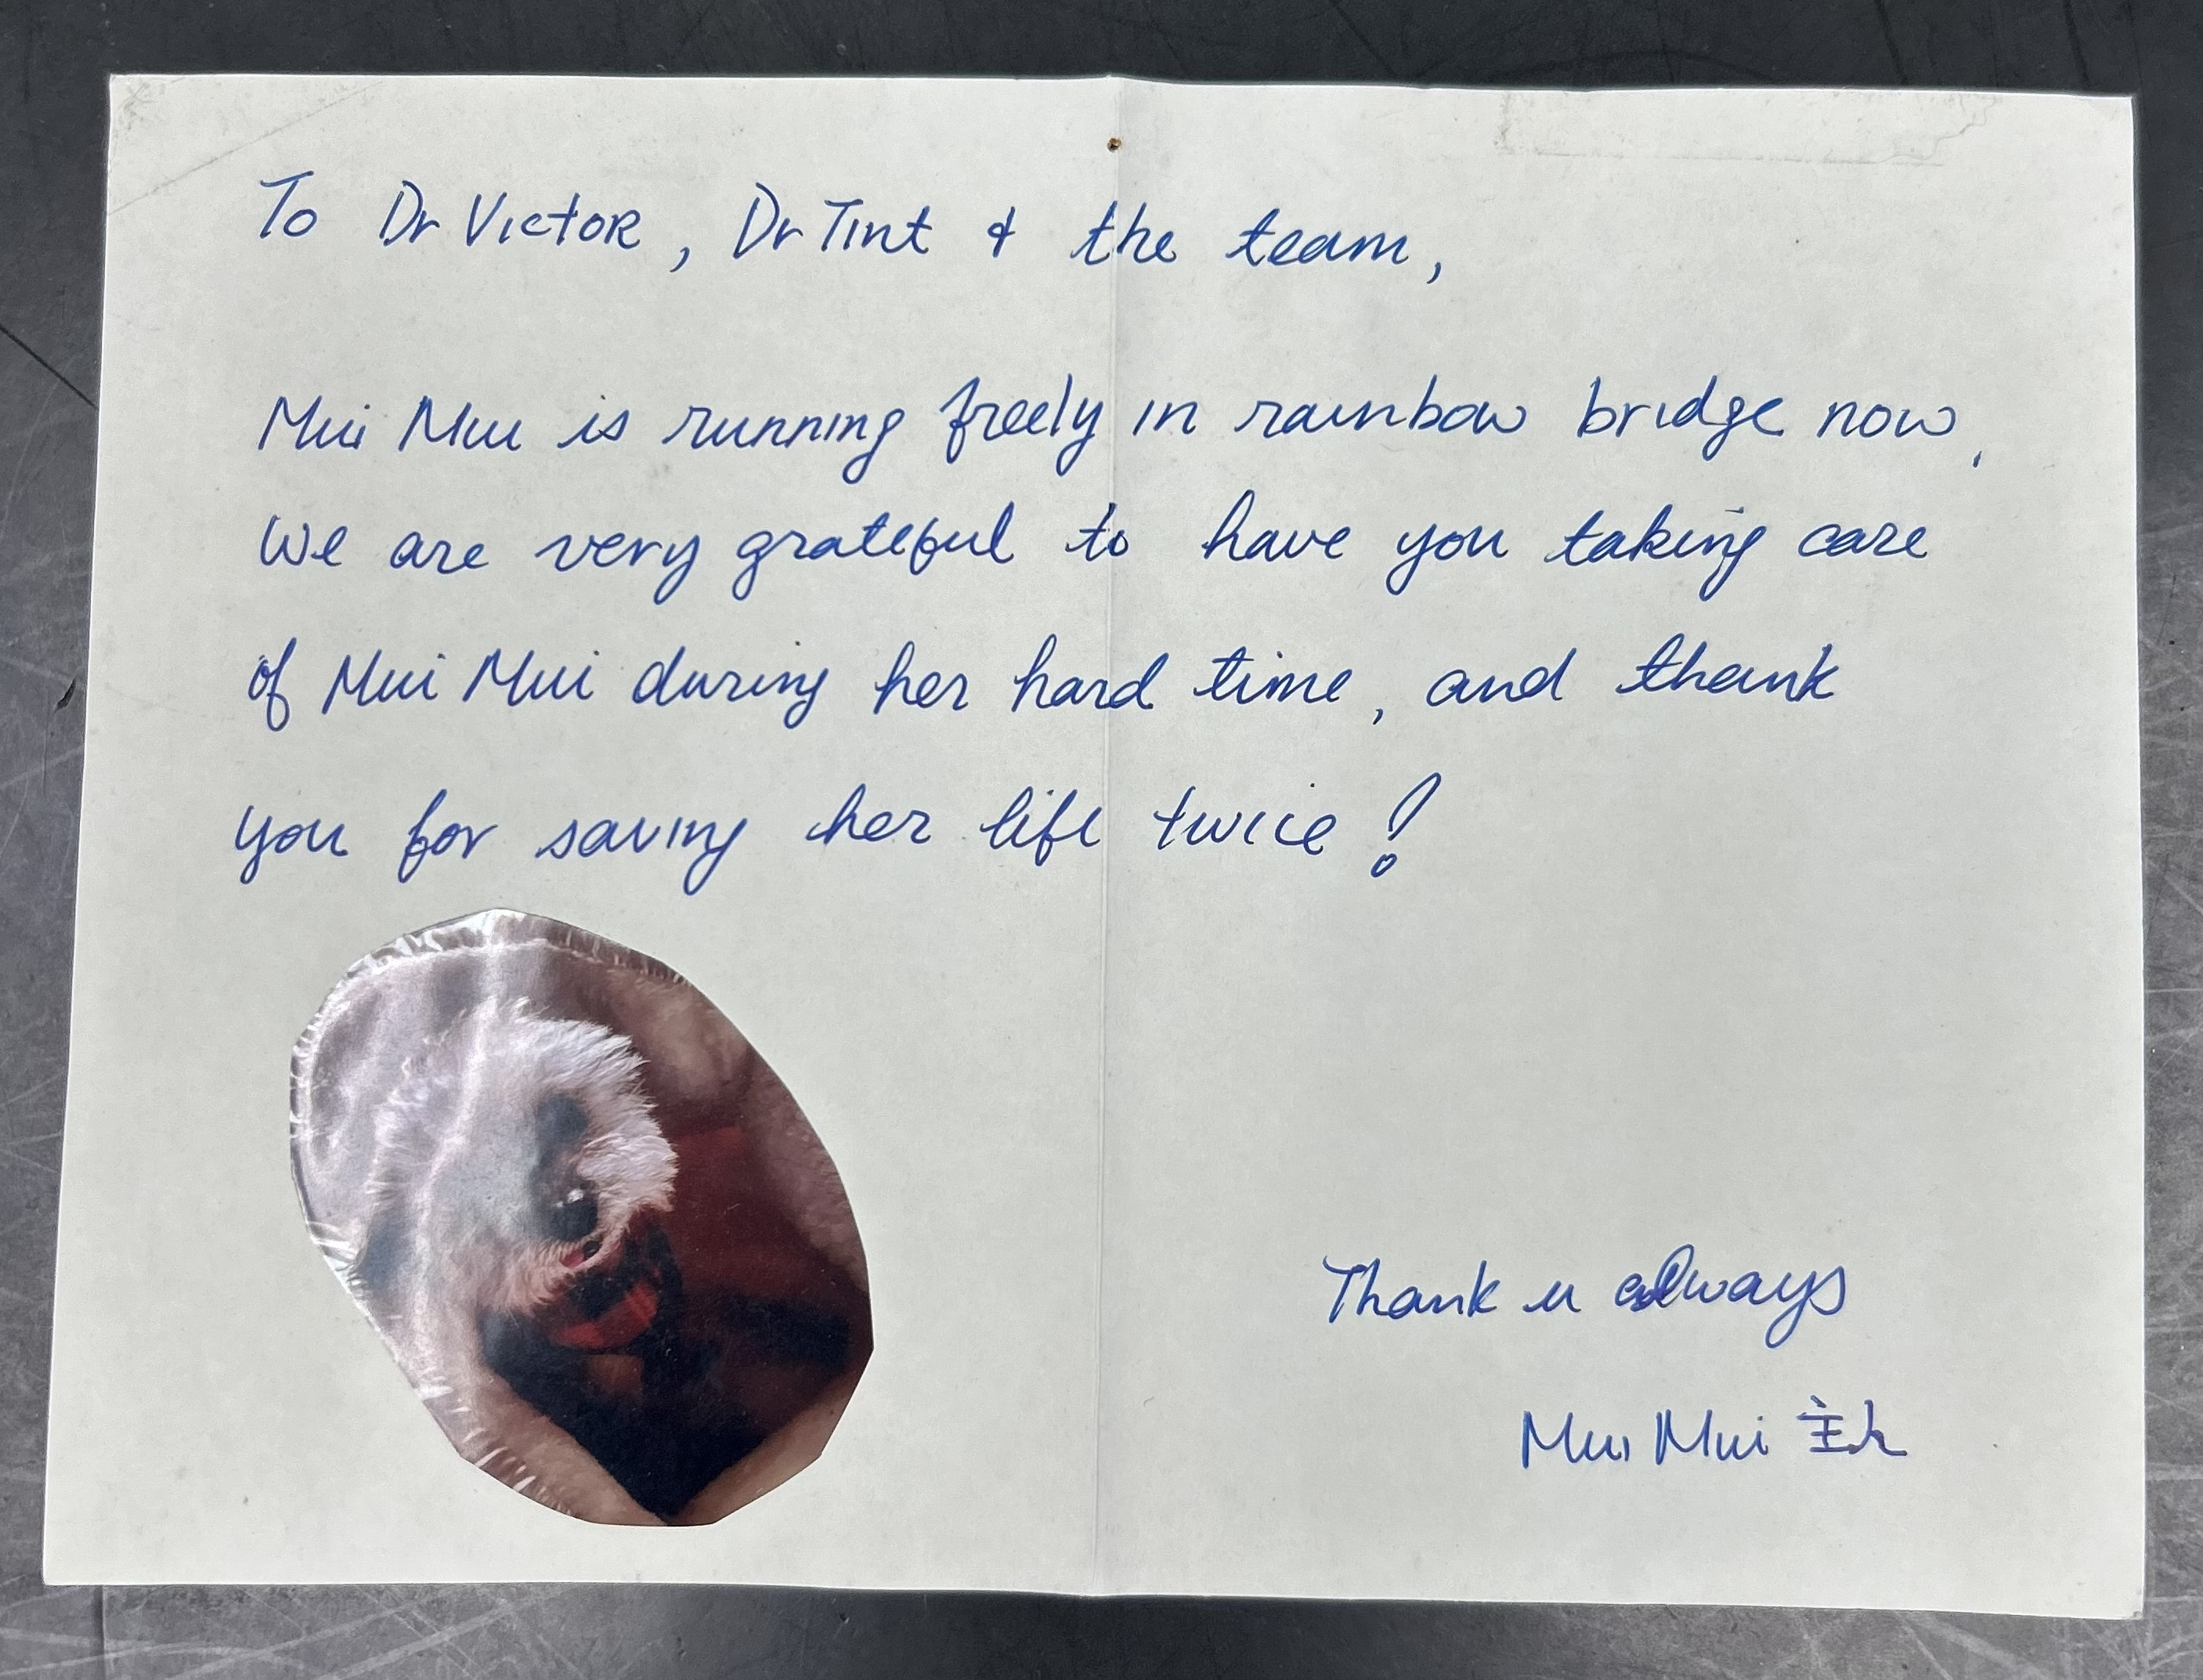 To Dr Victor, Dr Tint & the team,
Mui Mui is running freely in rainbow bridge now.
We are very grateful to have you taking care
of Mui Mui during her hard time, and thank
you for saving her life twice!
Thank u always
Mui Mui 主人